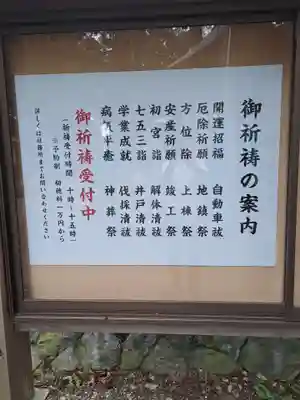 御祈祷の案内
開運招福　自動車祓
厄除祈願　地鎮祭
方位除　上棟祭
安産祈願　竣工祭
初宮詣　解体清祓
七五三詣　井戸清祓
学業成就　伐採清祓
病気平癒　神葬祭
御祈祷受付中
（祈祷受付時間　十時～十五時）
※予約制　初穂料一万円から
詳しくは社務所までお問い合わせください